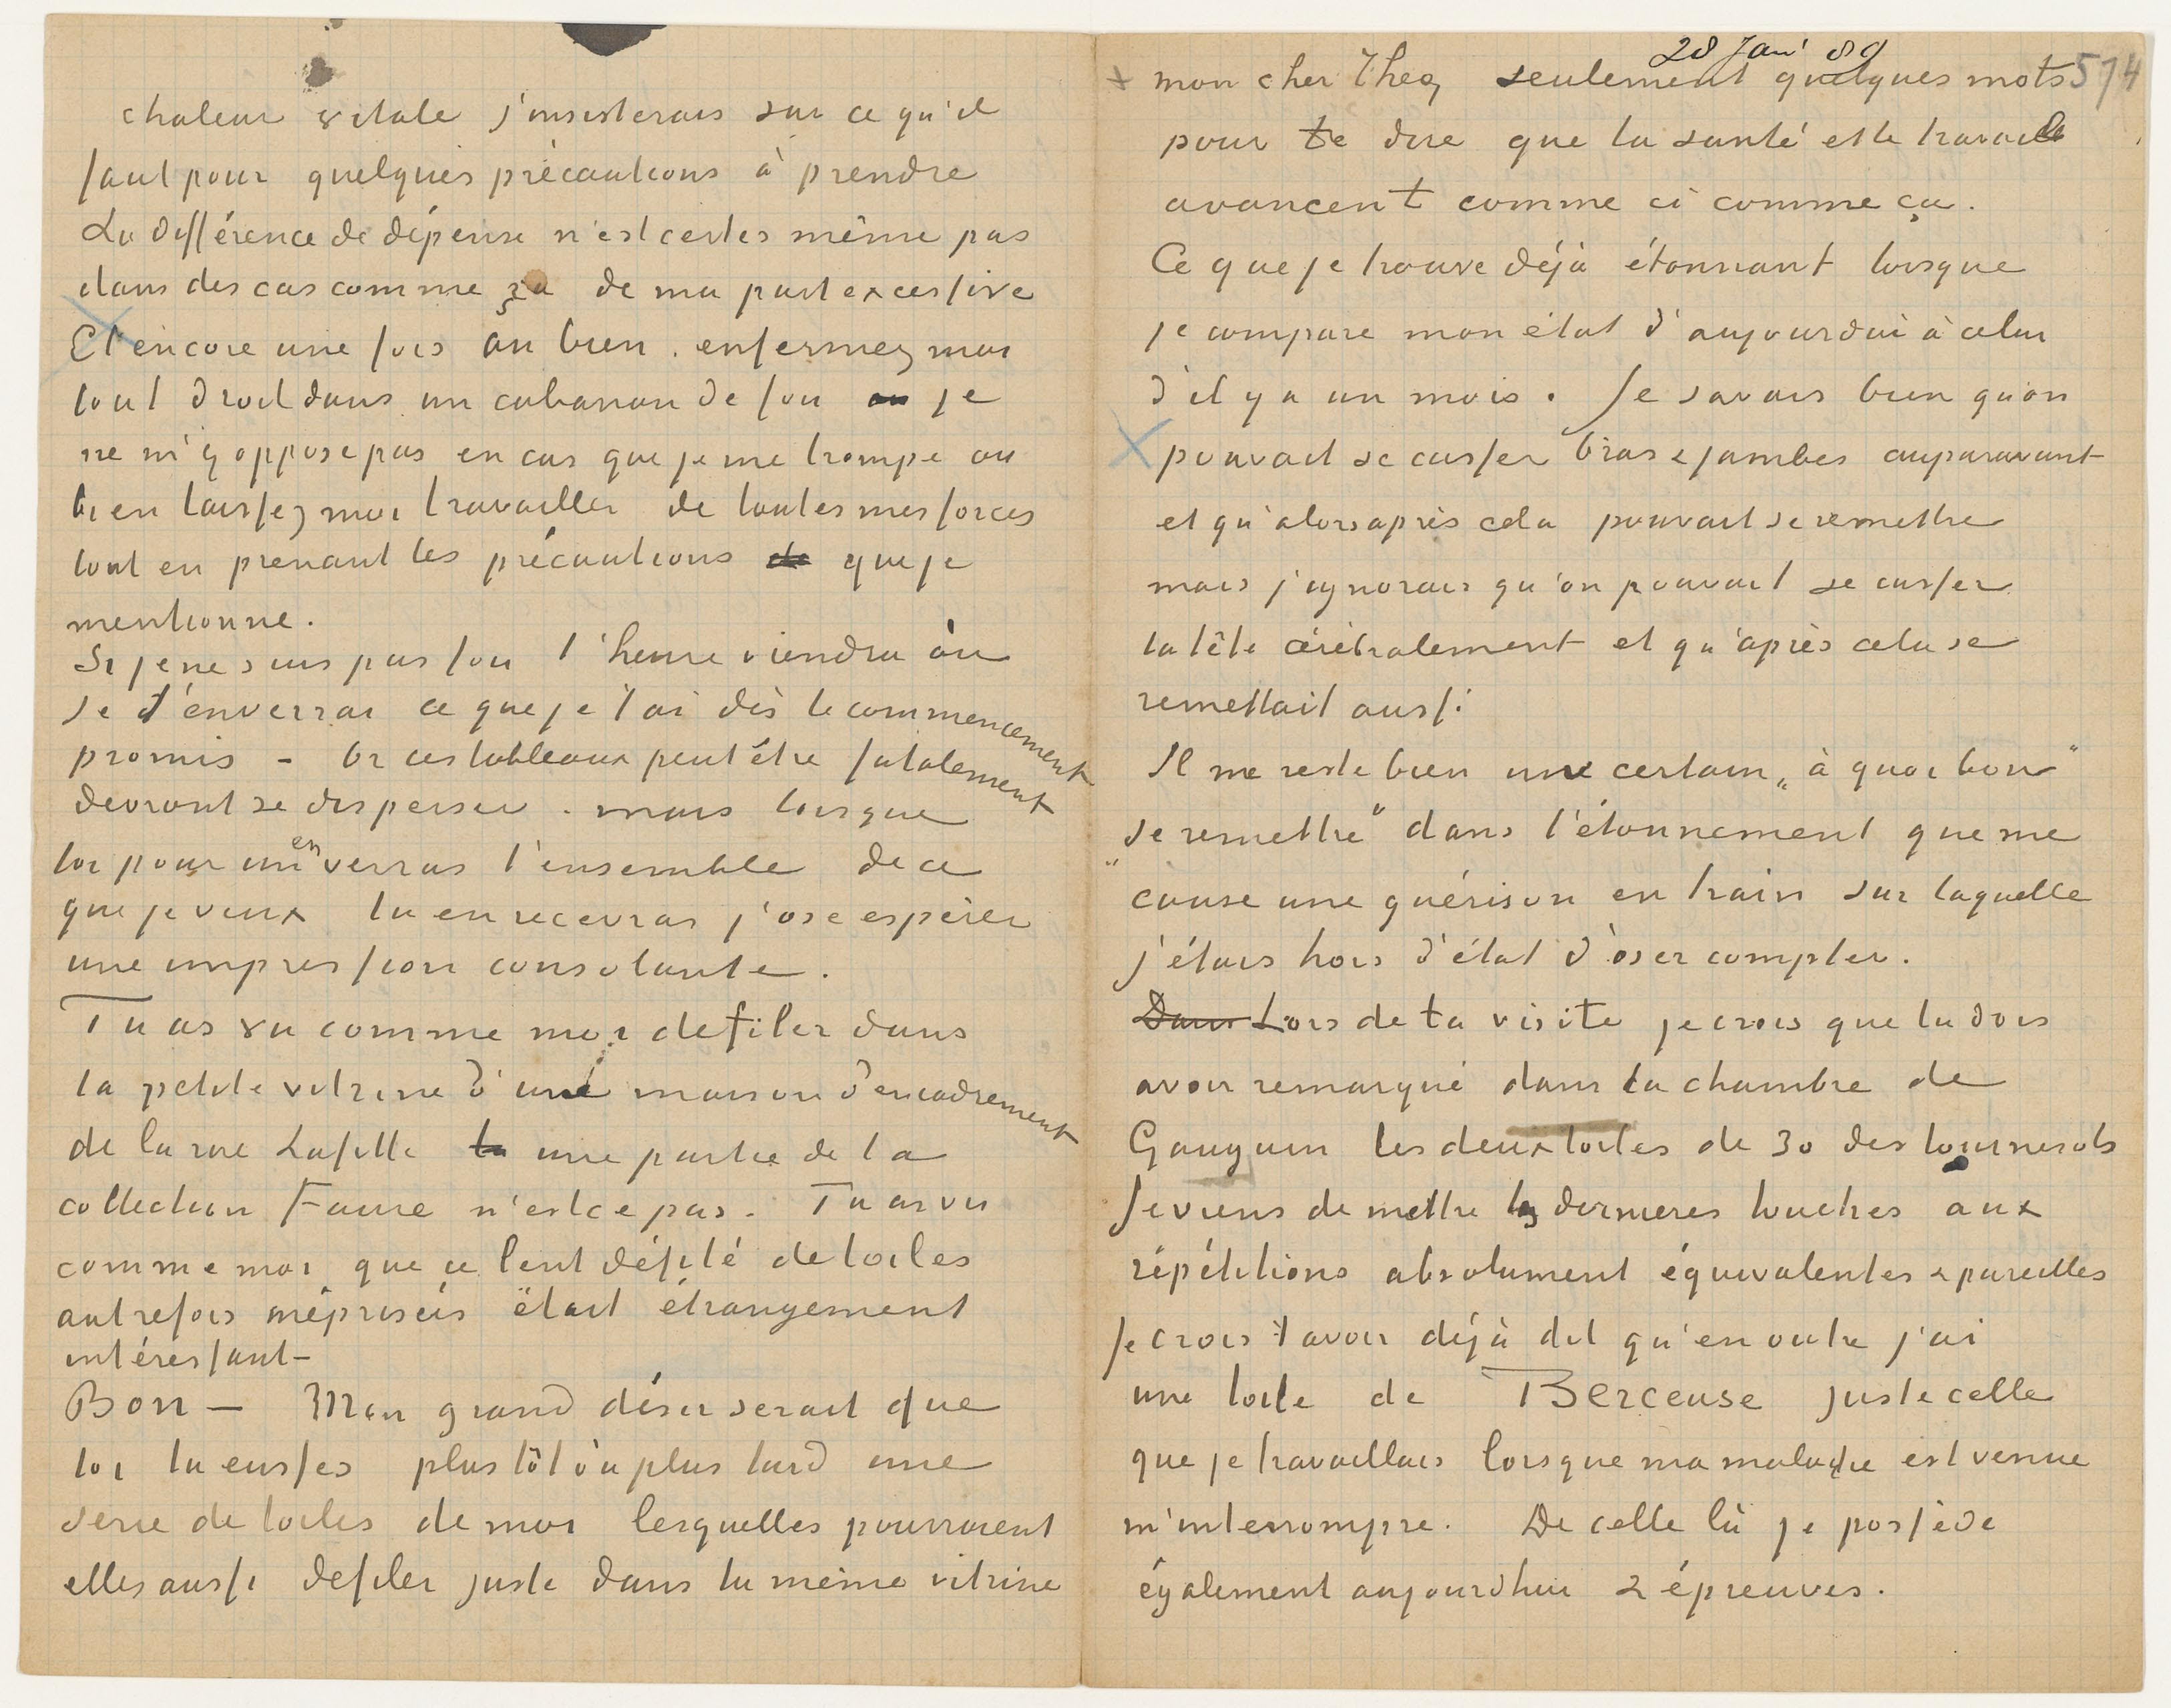 chaleur vitale j'insisterais sur ce qu'il
faut pour quelques précautions à prendre
La différence de dépense n'est certes même pas
dans des cas comme ça de ma part excessive
Et encore une fois ou bien enfermez moi
tout droit dans un cabanon de fou ou je
ne m'y oppose pas en cas que je me trompe ou
bien laissez moi travailler de toutes mes forces
tout en prenant les précautions de que je
mentionne.
Si je ne suis pas fou l'heure viendra où
je t'enverrai ce que je t'ai dès le commencement
promis – Or ces tableaux peut être fatalement
devront se disperser. mais lorsque
toi pour un en verras l'ensemble de ce
que je veux tu en recevras j'ose espérer
une impression consolante.
Tu as vu comme moi defiler dans
la petite vitrine d'une maison d'encadrement
de la rue Lafitte la une partie de la
collection Faure n'est ce pas. Tu as vu
comme moi que ce lent défilé de toiles
autrefois méprisées était étrangement
intéressant –
Bon – Mon grand désir serait que
toi tu eusses plus tôt où plus tard une
série de toiles de moi lesquelles pourraient
elles aussi defiler juste dans la même vitrine
28 Jan' 89
574
mon cher Theo, seulement quelques mots
pour te dire que la santé et le travail
avancent comme ci comme ça.
Ce que je trouve déjà étonnant lorsque
je compare mon état d'aujourdui à celui
d'il y a un mois. Je savais bien qu'on
pouvait se casser bras & jambes auparavant
et qu'alors après cela pouvait se remettre
mais j'ignorais qu'on pouvait se casser
la tête cérébralement et qu'après cela se
remettait aussi
Il me reste bien une certain „à quoi bon"
"se remettre" dans l'étonnement que me
cause une guérison en train sur laquelle
j'étais hors d'état d'oser compter.
Dans Lors de ta visite je crois que tu dois
avoir remarqué dans la chambre de
Gauguin les deux toiles de 30 des tournesols
Je viens de mettre les dernieres touches aux
répétitions absolument équivalentes & pareilles
Je crois t'avoir déjà dit qu'en outre j'ai
une toile de Berceuse juste celle
que je travaillais lorsque ma maladie est venue
m'interrompre. De celle là je possède
également aujourdhui 2 épreuves.